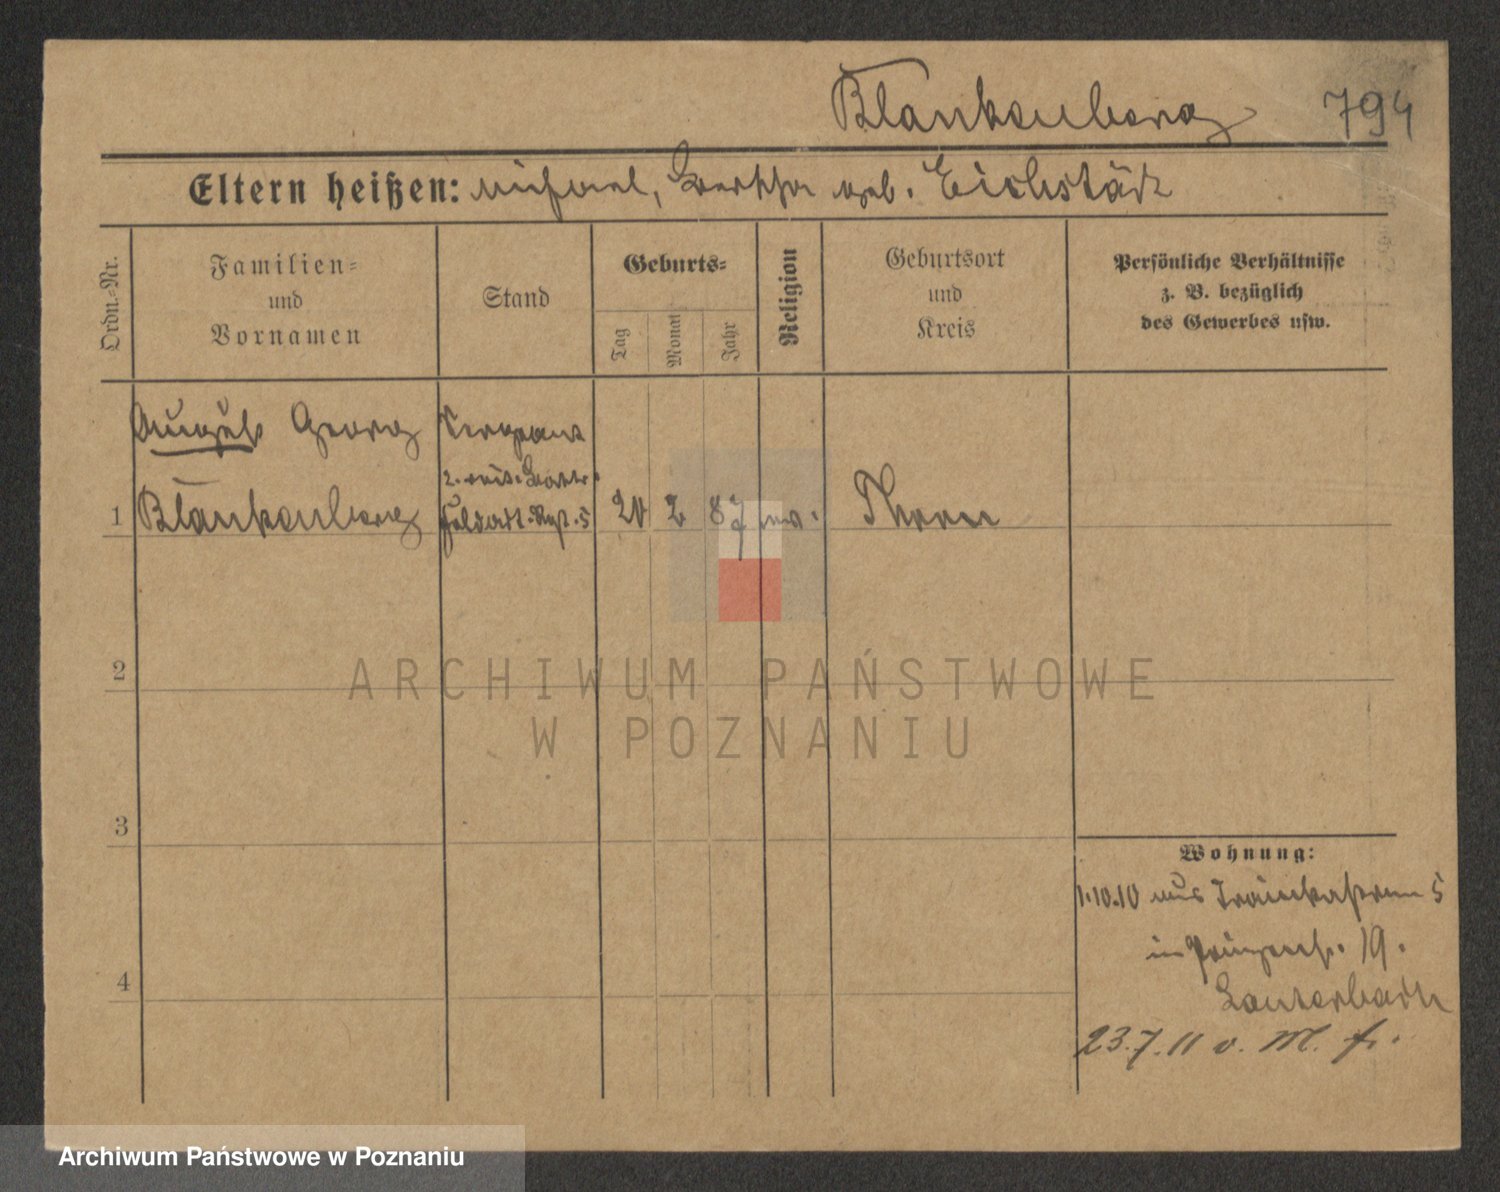 Blankenberg 794
Eltern heißen: Michael, Bertha geb. Eichstädt
Ordn.-Nr.
Familien-
und
Vornamen
Stand
Geburts-
Tag
Monat
Jahr
Religion
Geburtsort
und
Kreis
Persönliche Verhältnisse
z. B. bezüglich
des Gewerbes usw.
August Georg Sergeant
2. reit. Battr.
1 Blankenberg Feldart. Rgt. 5 20 2 87 ev. Thorn
2
ARCHIWUM PAŃSTWOWE
W POZNANIU
3
Wohnung:
1.10.10 aus Trainkaserne 5
in Prinzenstr. 19.
Lauterbach
4
23.7.11 v. M. f.
Archiwum Państwowe w Poznaniu